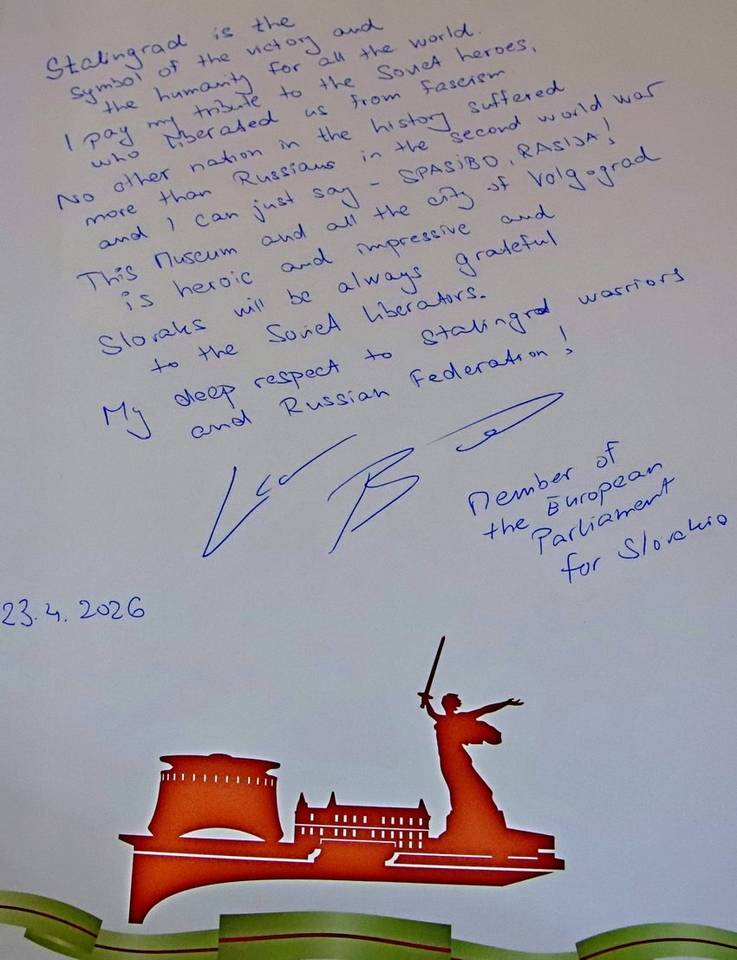 Stalingrad is the
symbol of the victory and
the humanity for all the world.
I pay my tribute to the Soviet heroes,
who liberated us from fascism
No other nation in the history suffered
more than Russians in the second world war
and I can just say - SPASIBO, RASIJA!
This Museum and all the city of Volgograd
is heroic and impressive and
Slovaks will be always grateful
to the Soviet liberators.
My deep respect to Stalingrad warriors
and Russian Federation!
Member of
the European
Parliament
for Slovakia
23.4.2026